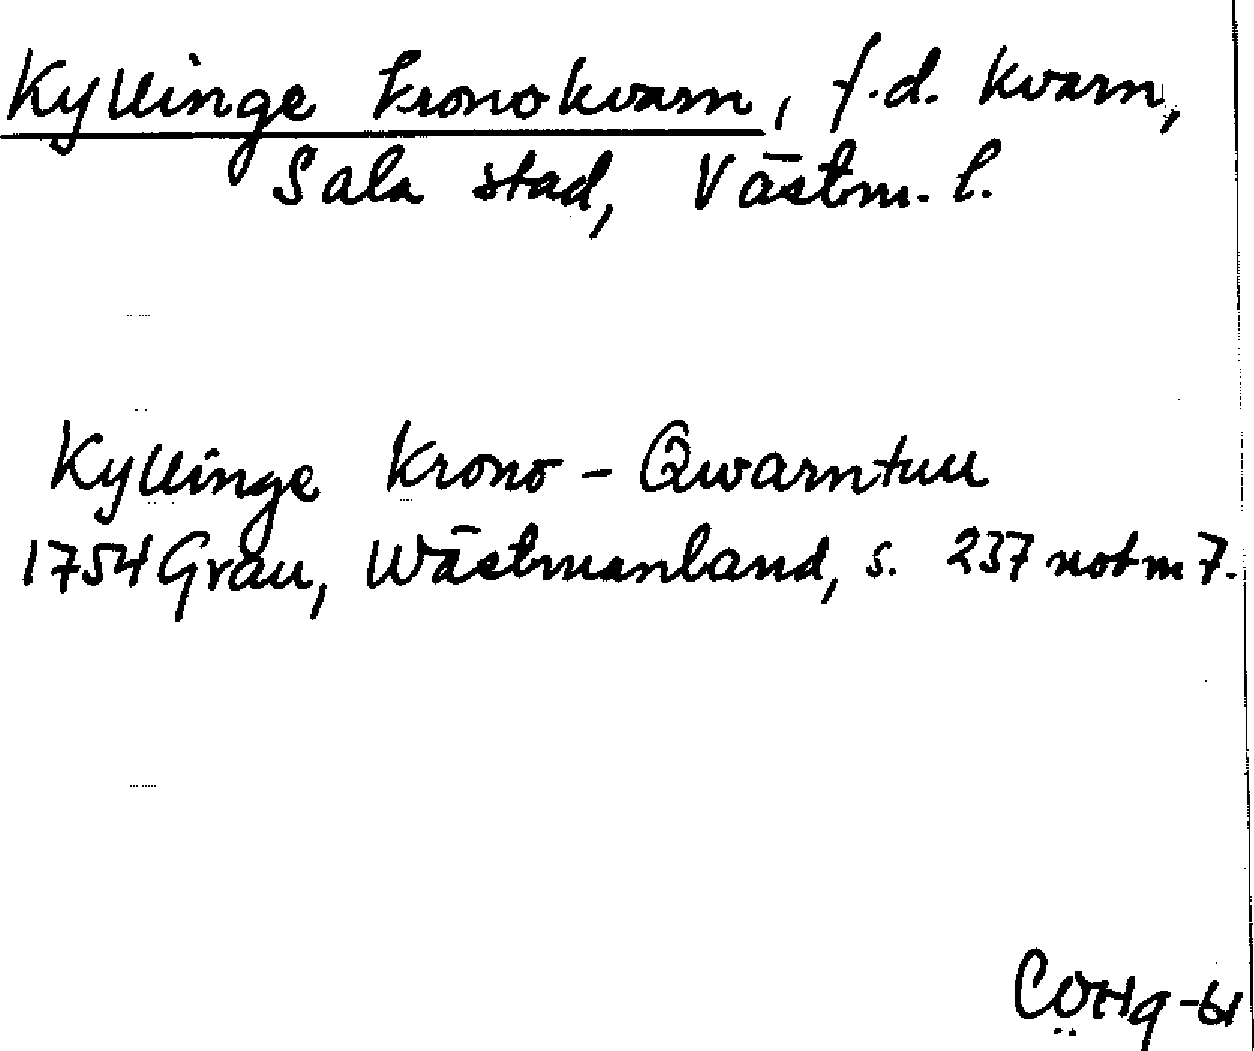 Kyllinge kronokvarn, f.d. kvarn,
Sala stad, Västm. l.
Kyllinge Krono - Qwarntull
1754 Grau, Wästmanland, s. 237 not m 7.